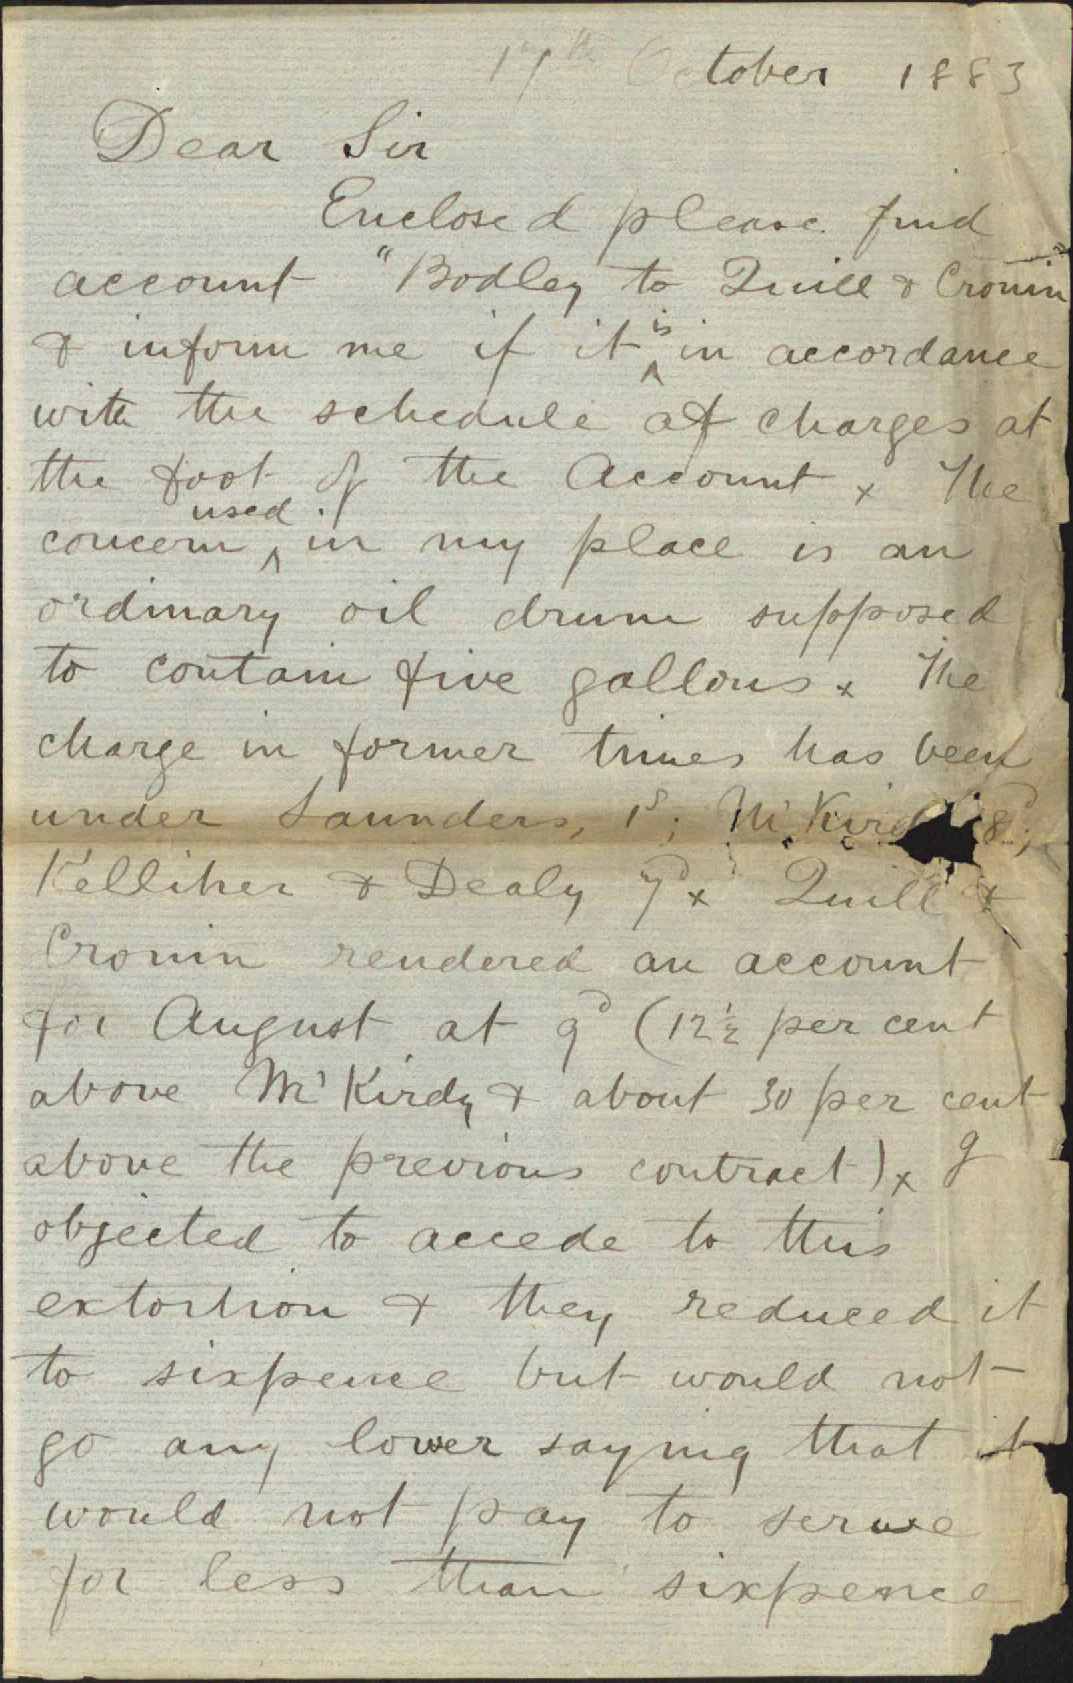 17th October 1883
Dear Sir
Enclosed please find
account "Bodley to Quill & Cronin"
& inform me if it is in accordance
with the schedule of charges at
the foot of the Account x The
concern used in my place is an
ordinary oil drum supposed
to contain five gallons x The
charge in former times has been
under Saunders, 1s; 8d;
Kelliher & Dealy 7d x Quill &
Cronin rendered an account
for August at 9d (12½ per cent
above McKirdy & about 30 per cent
above the previous contract) x I
objected to accede to this
extortion & they reduced it
to sixpence but would not
go any lower saying that it
would not pay to serve
for less than sixpence